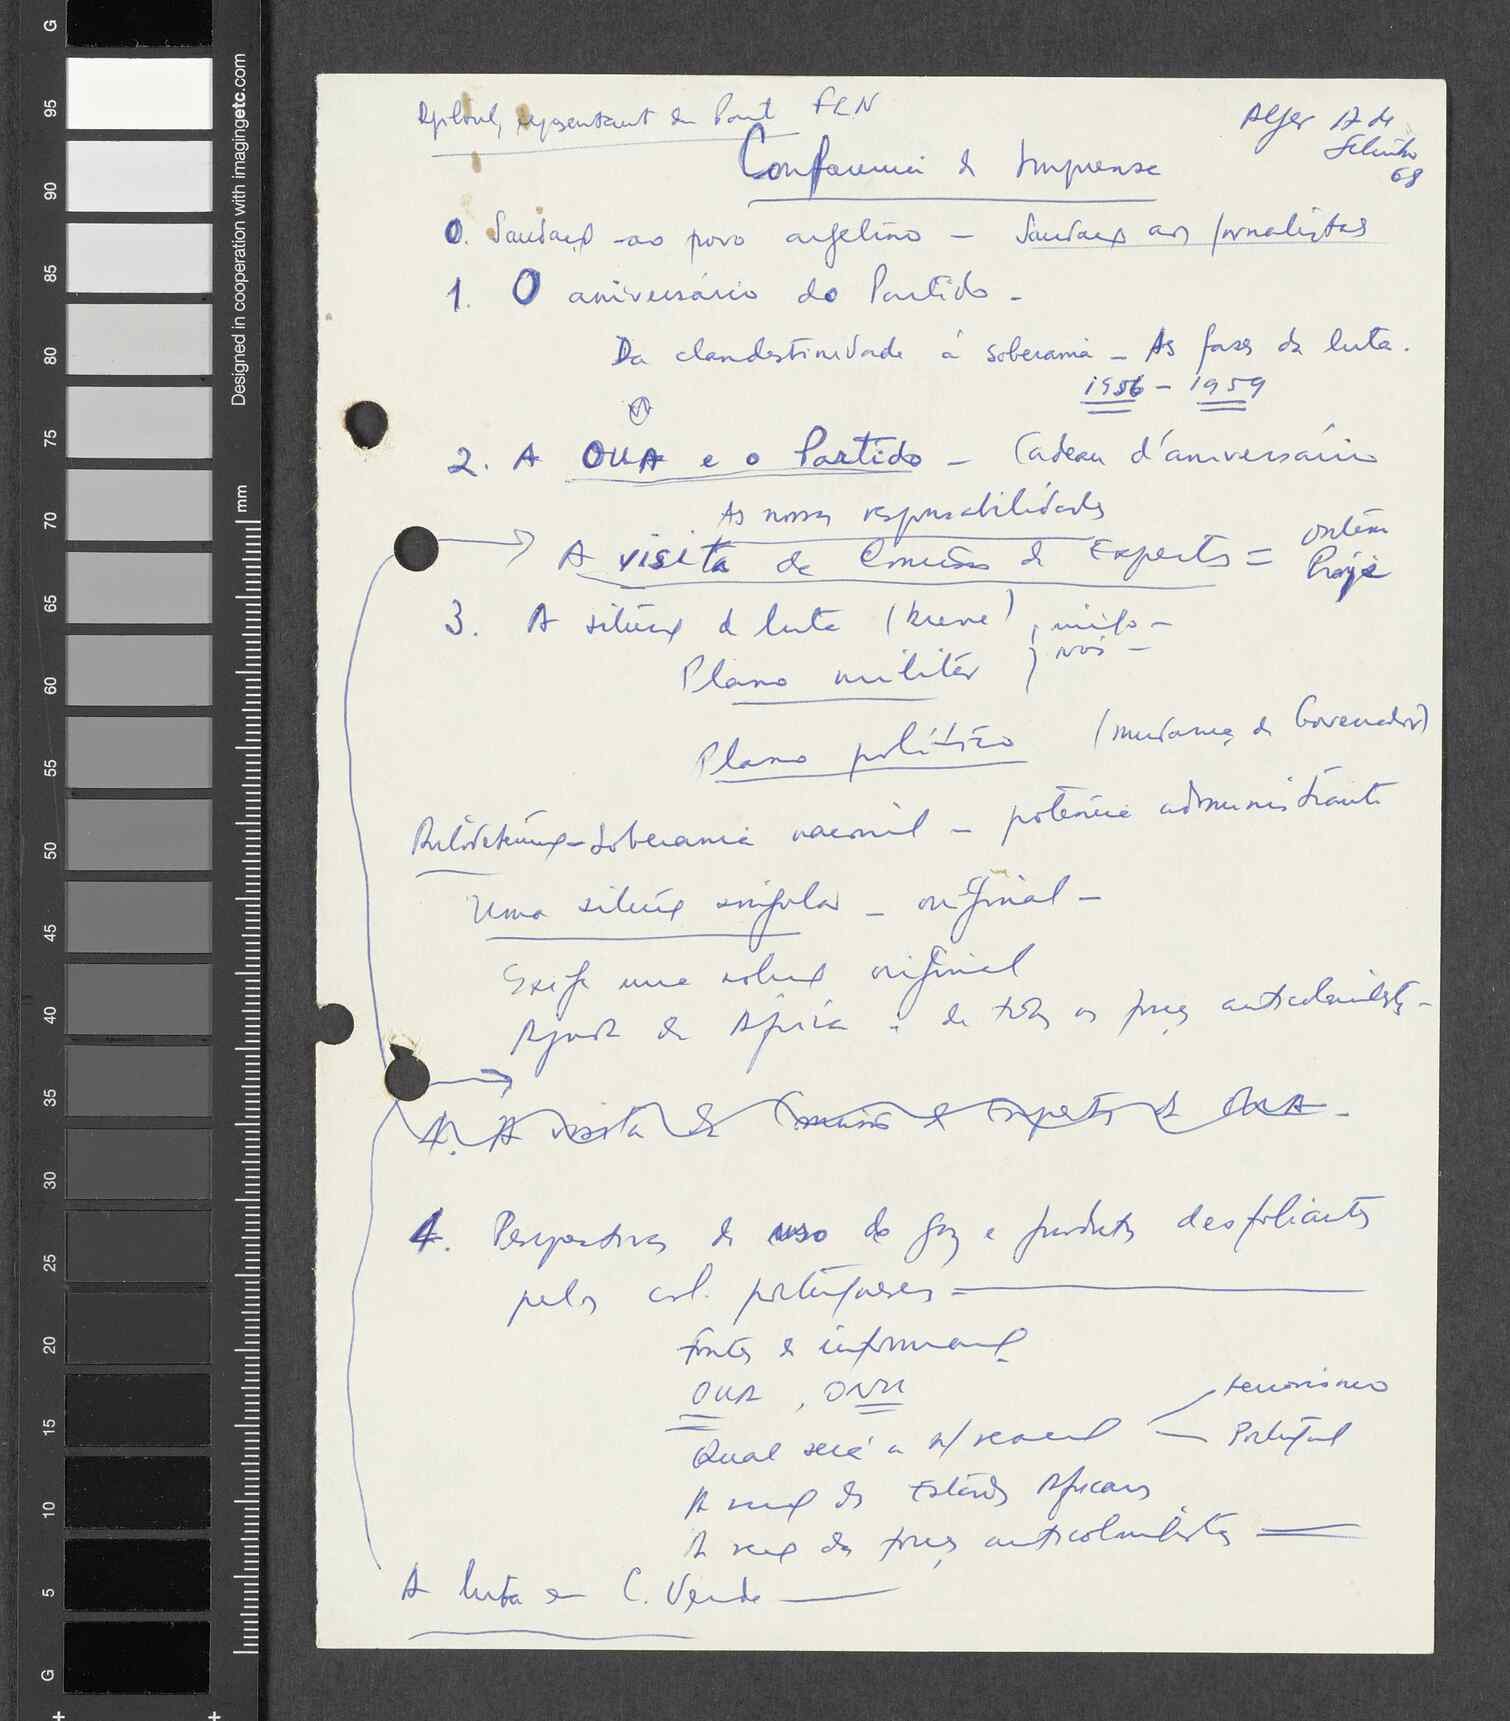 representant du Parti FLN
Alger 17 de
Setembro
68
Conferencia de Imprensa
0. Saudaç ao povo argelino - Saudaç aos jornalistas
1. O aniversário do Partido -
Da clandestinidade à soberania - As fases da luta.
1956 - 1959
2. A OUA e o Partido - Cadeau d'aniversário
As nossas responsabilidades
A visita da Comissão de Experts =
ontem
hoje
3. A situaç da luta (breve)
inimigo -
nós -
Plano militar
Plano político (mudança de Governador)
Autodeterminaç - Soberania nacional - potência administrante
Uma situaç singular - original -
Exige uma soluç original
Ajuda da África e de todas as forças anticolonialistas -
4. A visita da Comissão de Experts da OUA -
4. Perspectivas de uso de gaz e produtos desfoliantes
pelos col. portugueses
Fontes de informaç
OUA, ONU
Qual será a n/ reacç
terrorismo
Portugal
A reacç dos Estados Africanos
A reacç das forças anticolonialistas
A luta em C. Verde
Designed in cooperation with imagingetc.com
mm
G
95
90
85
80
75
70
65
60
55
50
45
40
35
30
25
20
15
10
5
G